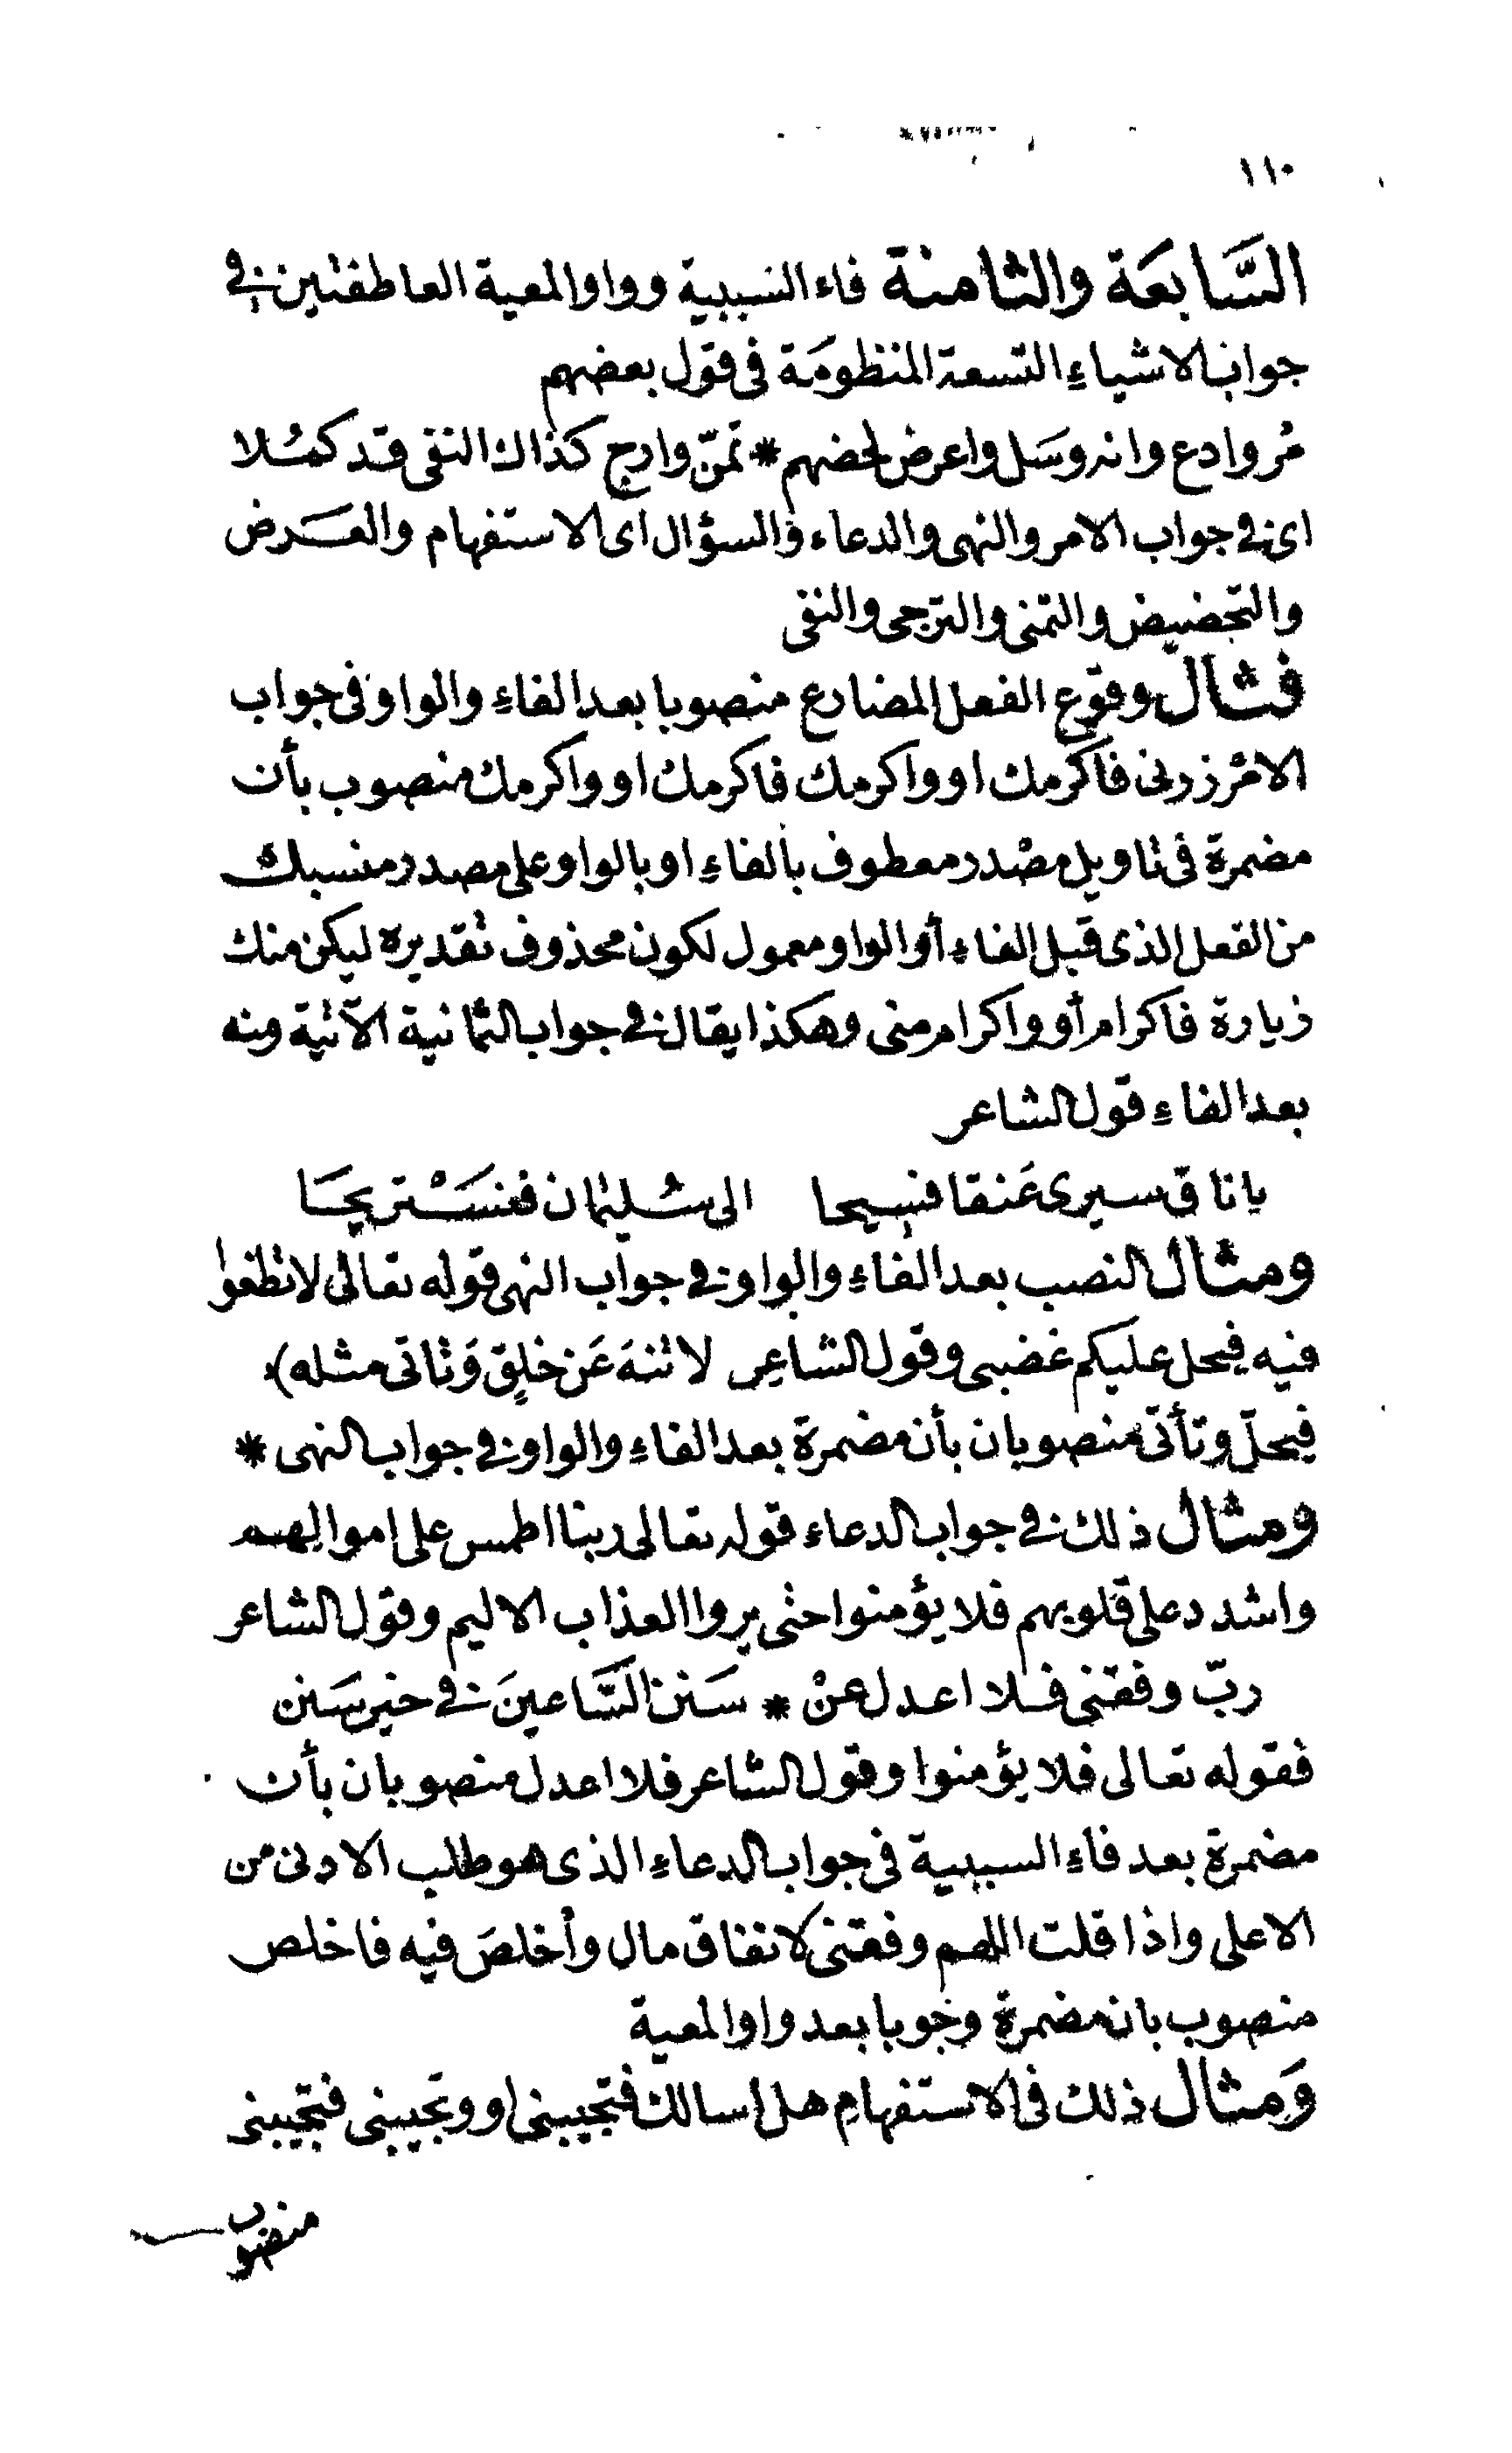 ١١٠
السَّابعَة والثامنة فاء السببية وواو المعية العاطفتين في
جواب الاشياءِ التسعة المنظومَة فى قول بعضهم
مُر وادع وانه وسَل واعرض لحضهم * تمنّ وارج كذاك النفى قد كمُلا
اى فى جواب الامر والنهى والدعاء والسؤال اى الاستفهام والعَرض
والتحضيض والتمنى والترجى والنفى
فمثال وقوع الفعل المضارع منصوبا بعد الفاءِ والواو فى جواب
الامر زرنى فاكرمك او واكرمك فاكرمك او واكرمك منصوب بأن
مضمرة فى تاويل مصْدر معطوف بالفاءِ او بالواو على مصدر منسبك
من الفعل الذى قبل الفاء أو الواو معمول لكون محذوف تقديره ليكن منك
زيارة فاكرام أو واكرام منى وهكذا يقال فى جواب الثمانية الآتية ومنه
بعد الفاءِ قول الشاعر
يا ناق سيرى عَنقا فسيحا الى سُليمان فنسَْتريحَا
ومثال النصب بعد الفاءِ والواو فى جواب النهى قوله تعالى لا تطغوا
فيه فيحل عليكم غضبى وقول الشاعِر لا تنهَ عَن خلِق وَتاتى مثله)
فيحلّ وتأتى منصوبان بأن مضمرة بعد الفاءِ والواو فى جواب النهى *
ومثال ذلك فى جواب الدعاء قوله تعالى ربنا اطمس على اموالهم
واشدد على قلوبهم فلا يؤمنوا حتى يروا العذاب الاليم وقول الشاعر
ربّ وفقنى فلا اعدل عنْ * سَنن السَّاعينَ فى خير سَنن
فقوله تعالى فلا يؤمنوا وقول الشاعر فلا اعدل منصوبان بأن
مضمرة بعد فاءِ السببية فى جواب الدعاءِ الذى هو طلب الادنى من
الاعلى واذا قلت اللهم وفقنى لانفاق مال وأخلصَ فيه فاخلص
منصوب بان مضمرة وجوبا بعد واو المعية
وَمثال ذلك فى الاستفهامِ هل اسالك فتجيبنى او وتجيبنى فتجيبنى
منصوب